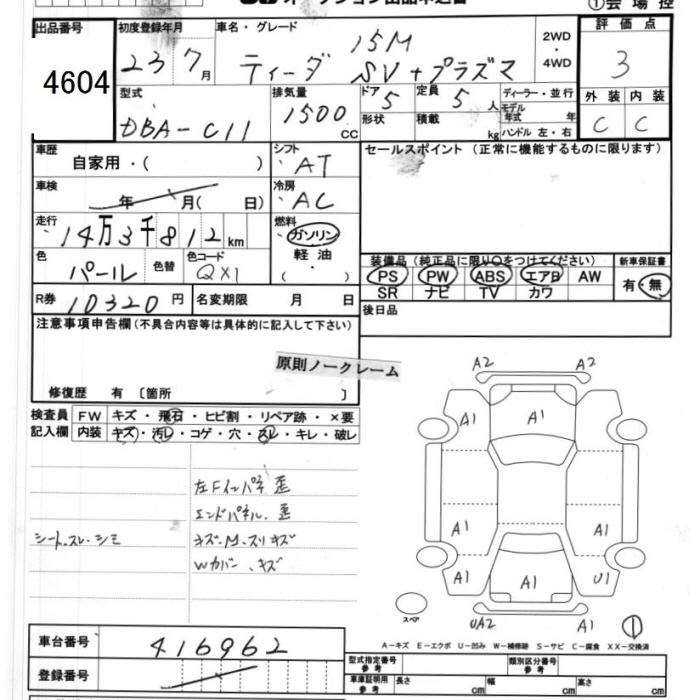 ① 会 場 控
出品番号
4604
初度登録年月
23 7月
車名・グレード
15M
ティーダ SV+プラズマ
2WD
・
4WD
評 価 点
3
外 装 内 装
C C
型式
DBA-C11
排気量
1500 cc
ドア 5
定員 5 人
形状
積載 kg
ディーラー・並行
モデル年式 年
ハンドル 左・右
車歴
自家用・( )
シフト
AT
車検
年 月( 日)
冷房
AC
走行
14万3千812km
燃料
ガソリン
軽 油
( ・ )
色
パール
色替
色コード
QX1
R券 10320円
名変期限 月 日
セールスポイント (正常に機能するものに限ります)
装備品(純正品に限り○をつけてください)
PS PW ABS エアB AW
SR ナビ TV カワ
新車保証書
有・無
後日品
注意事項申告欄(不具合内容等は具体的に記入して下さい)
原則ノークレーム
修復歴 有 〔箇所 〕
検査員記入欄
FW キズ・飛石・ヒビ割・リペア跡・×要
内装 キズ・汚レ・コゲ・穴・スレ・キレ・破レ
左Fインパネ歪
エンドパネル、歪
シートスレ・シミ
キズ・M・スリキズ
Wカバー、キズ
A2 A2
A1 A1 A1
A1 A1
A1 A1 U1
UA2 A1
スペア
①
A-キズ E-エクボ U-凹み W-補修跡 S-サビ C-腐食 XX-交換済
車台番号
416962
登録番号
型式指定番号
参考
類別区分番号
参考
車庫証明用
参考
長さ cm 幅 cm 高さ cm